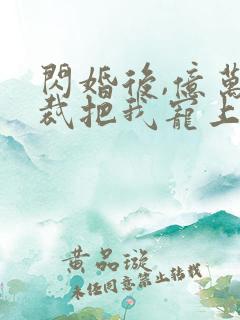 閃婚後,億萬
裁把我寵上
黃品璇
未经同意禁止转载